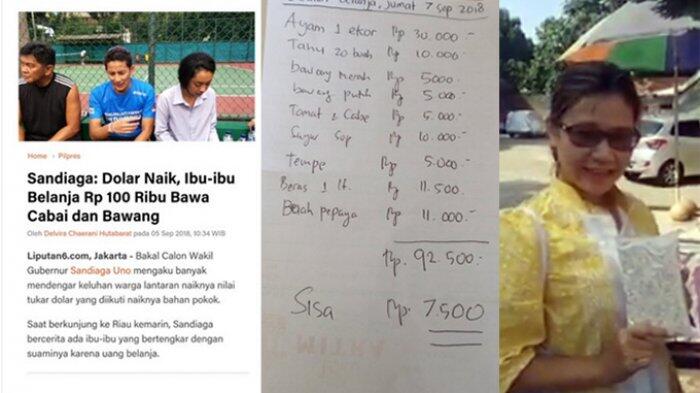 Home • Pilpres
Sandiaga: Dolar Naik, Ibu-ibu
Belanja Rp 100 Ribu Bawa
Cabai dan Bawang
Oleh Delvira Chaerani Hutabarat pada 05 Sep 2018, 10:34 WIB
Liputan6.com, Jakarta - Bakal Calon Wakil
Gubernur Sandiaga Uno mengaku banyak
mendengar keluhan warga lantaran naiknya nilai
tukar dolar yang diikuti naiknya bahan pokok.
Saat berkunjung ke Riau kemarin, Sandiaga
bercerita ada ibu-ibu yang bertengkar dengan
suaminya karena uang belanja.
belanja, Jumat 7 sep 2018
Ayam 1 ekor Rp 30.000.-
Tahu 20 buah Rp 10.000
bawang merah Rp 5000.-
bawang putih Rp 5.000
Tomat & Cabe Rp 5.000.-
Sayur Sop Rp 10.000
Tempe Rp 5.000
Beras 1 lt. Rp 11.500
Buah pepaya Rp 11.000.-
Rp. 92.500.-
Sisa Rp. 7.500